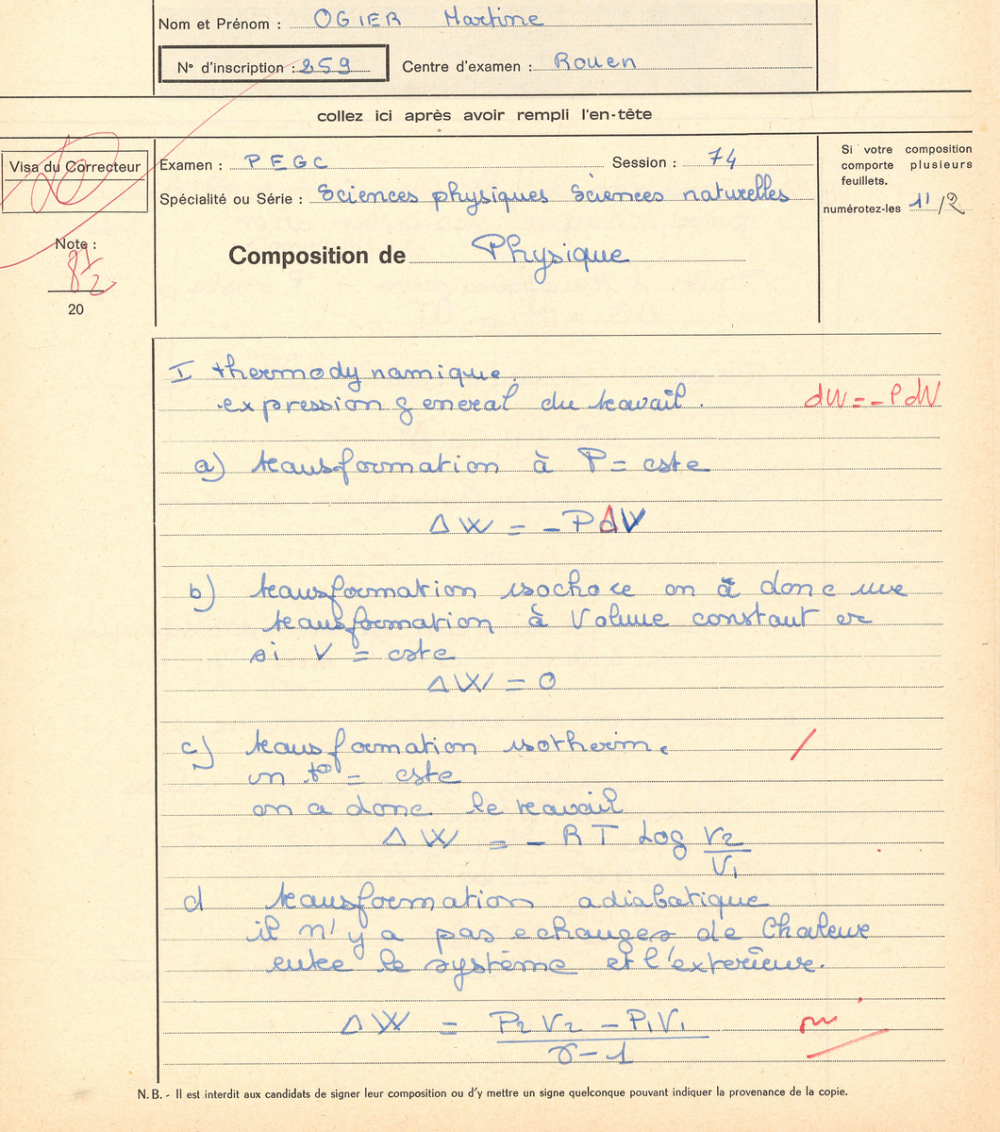 Nom et Prénom : OGIER Martine
N° d'inscription : 859
Centre d'examen : Rouen
collez ici après avoir rempli l'en-tête
Visa du Correcteur
Examen : PEGC
Session : 74
Spécialité ou Série : Sciences physiques Sciences naturelles
Si votre composition
comporte plusieurs
feuillets.
numérotez-les 1/2
Note :
8 1/2
20
Composition de Physique
I thermodynamique.
expression general du travail. dW = - PdV
a) transformation à P = cste
ΔW = - PΔV
b) transformation isochore on a donc une
transformation à Volume constant or
si V = cste
ΔW = 0
c) transformation isotherme
un t° = cste
on a donc le travail
ΔW = - RT Log V2/V1
d transformation adiabatique
il n'y a pas echanges de Chaleur
entre le système et l'exterieure.
ΔW = P2V2 - P1V1 / γ - 1
N. B. - Il est interdit aux candidats de signer leur composition ou d'y mettre un signe quelconque pouvant indiquer la provenance de la copie.